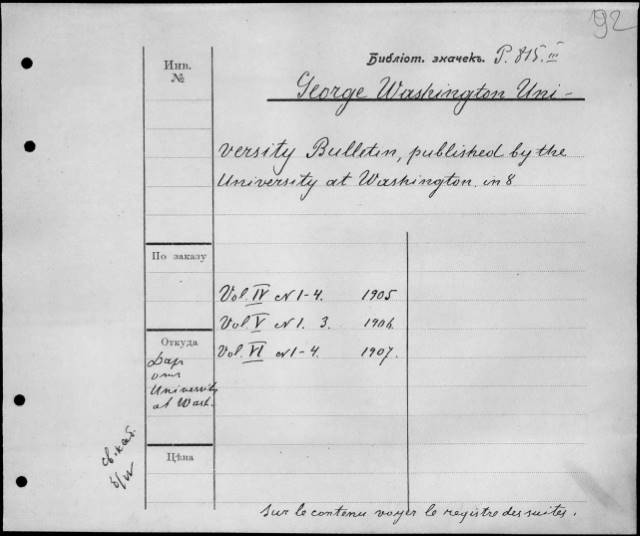 92
Библіот. значекъ. P. 815.III
George Washington Uni-
versity Bulletin, published by the
University at Washington. in 8
Инв.
№
По заказу
Vol. IV N 1-4. 1905
Vol. V N 1. 3. 1906.
Vol. VI N 1-4. 1907.
Откуда
Дар
от
University
at Wash.
св. каб.
Цѣна
Sur le contenu voyez le registre des suites.